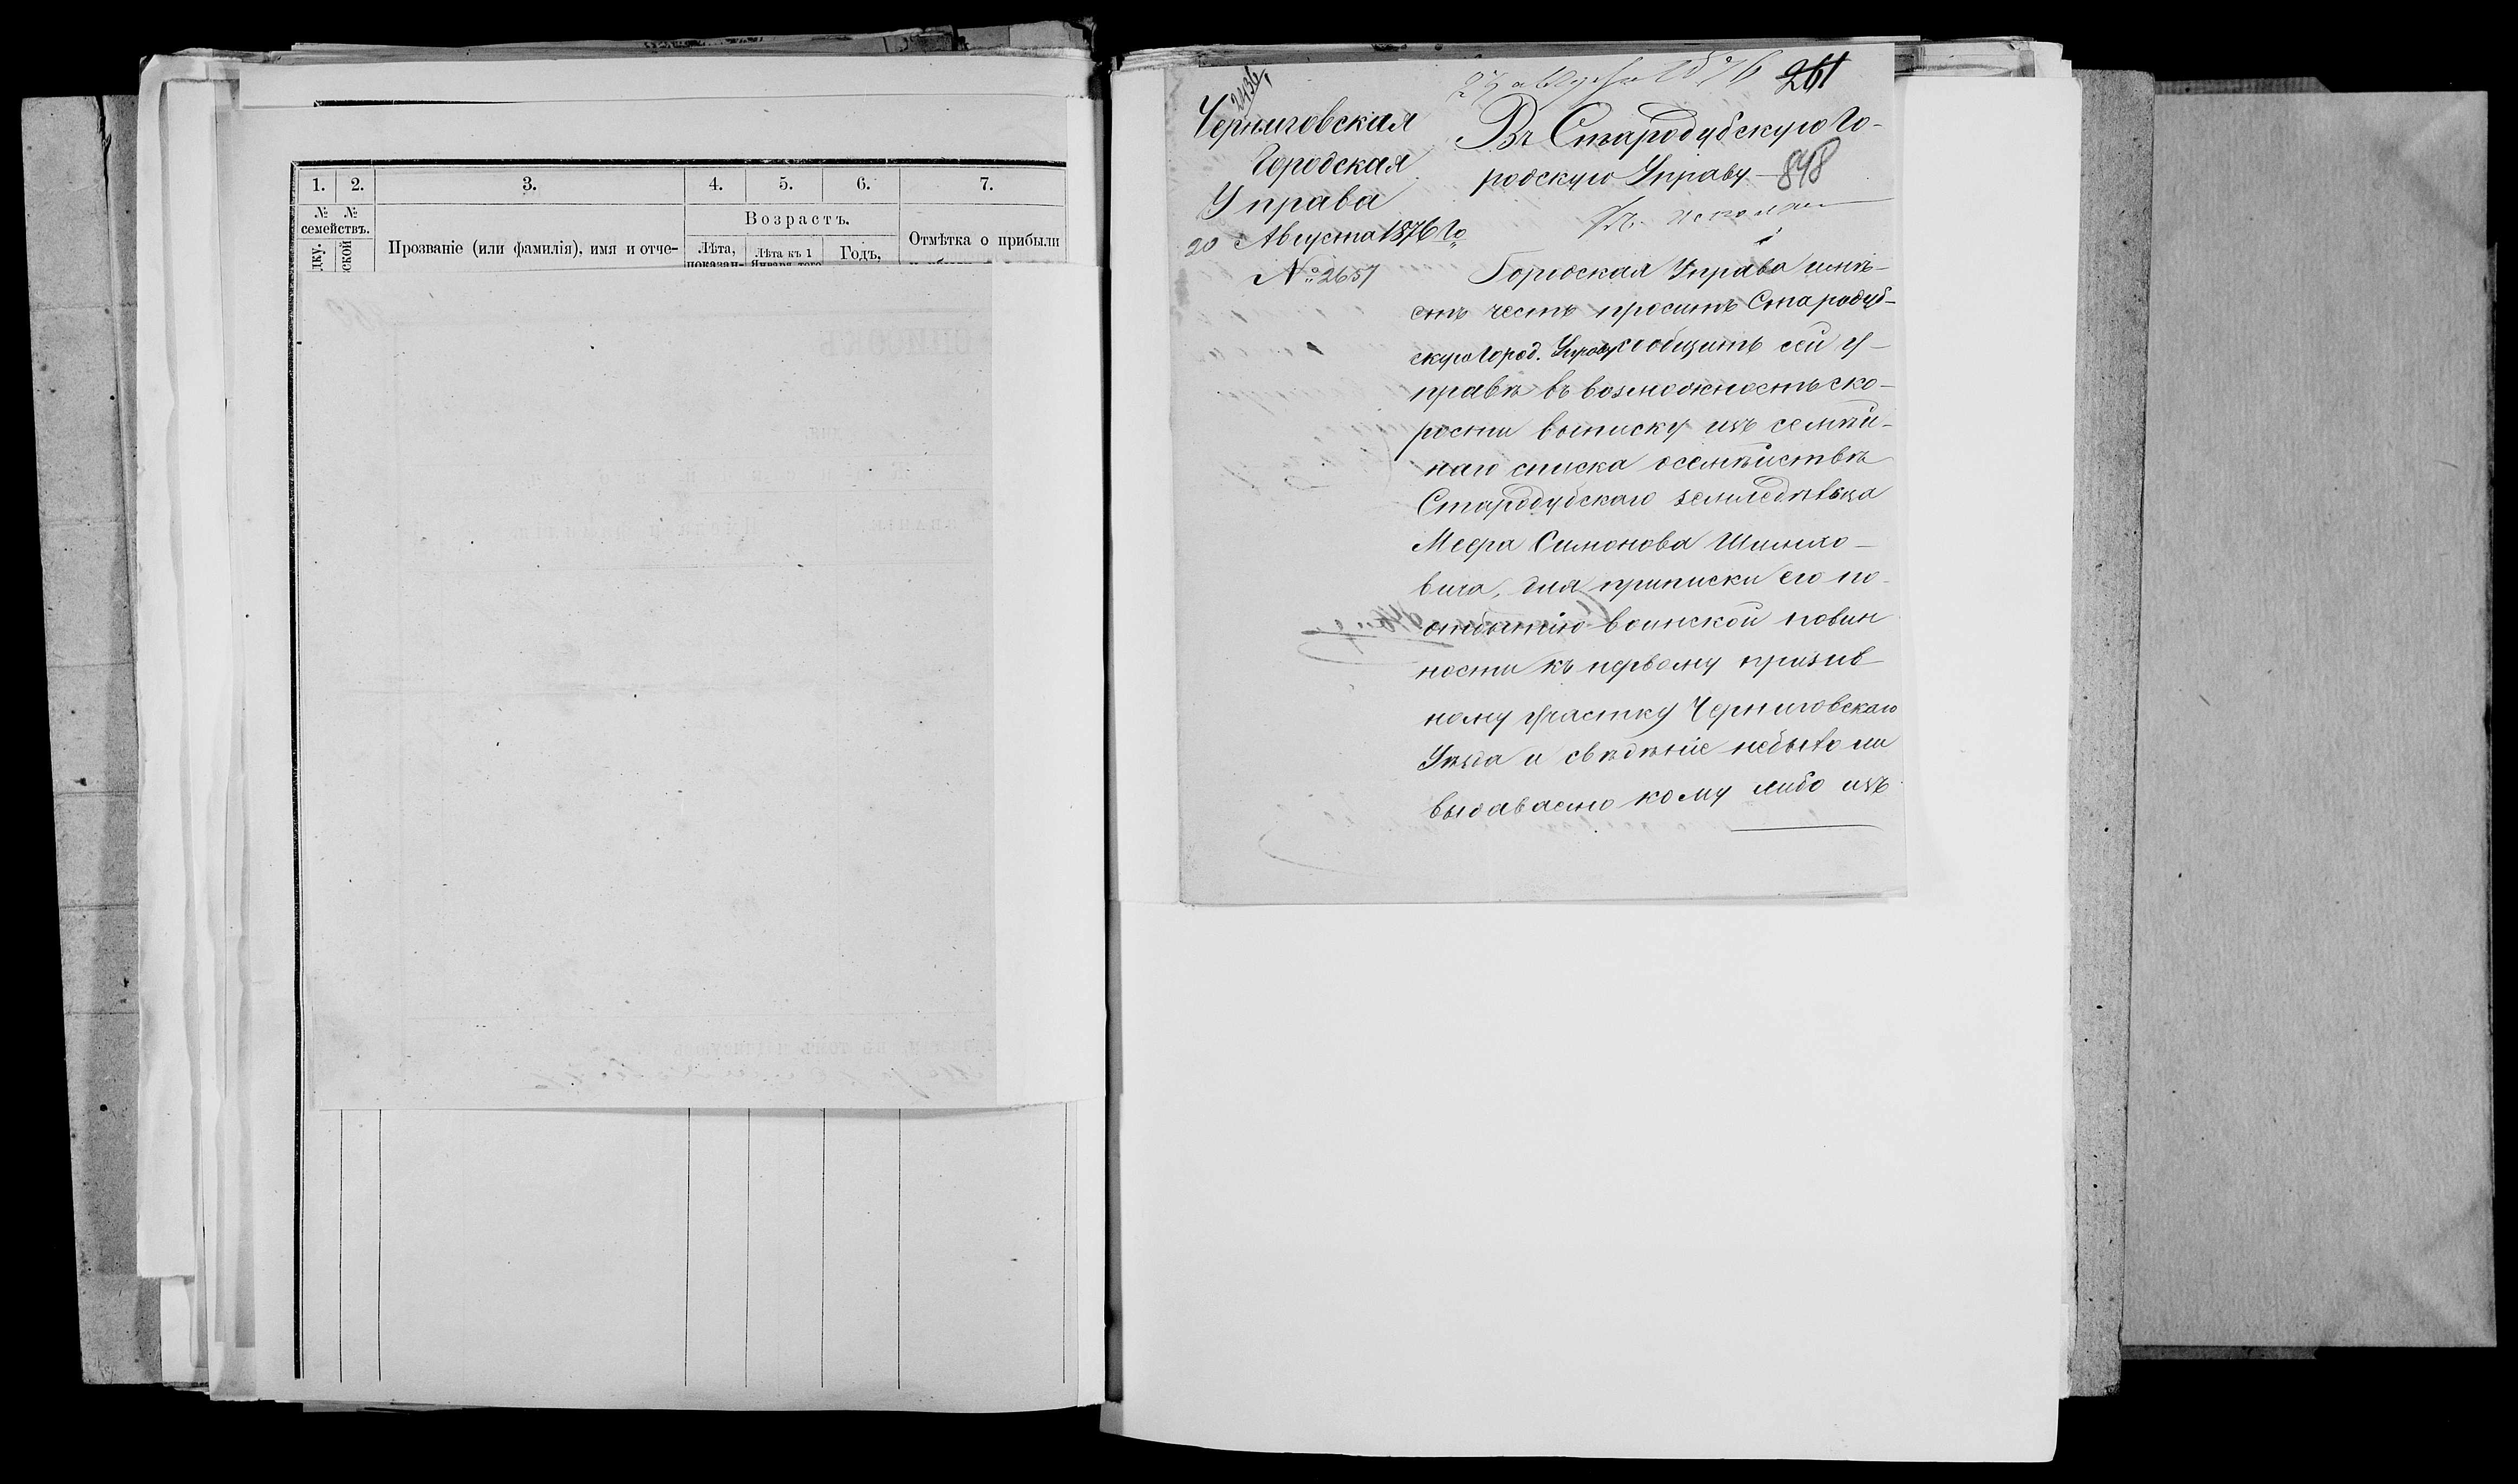 1. 2. 3. 4. 5. 6. 7.
№ № семействъ.
Возрастъ.
Прозваніе (или фамилія), имя и отче-
Лѣта, показан-
Лѣта къ 1 Января того
Годъ,
Отмѣтка о прибыли
2436
261
Черниговская
Городская
Управа
20 Августа 1876 го
№ 2657
Въ Стародубскую Го-
родскую Управу
848
Городская Управа имѣ-
етъ честь просить Стародуб-
скую Город. Управу сообщить сей У-
правѣ въ возможность ско-
рости выписку изъ семѣй-
наго списка о семѣйствѣ
Стародубскаго земледѣльца
Меера Симонова Шимхо-
вича, для приписки его по
отбытію воинской повин
ности къ первому призыв
ному участку Черниговскаго
Уѣзда и свѣдѣніе небыло ли
выдаваемо кому либо изъ